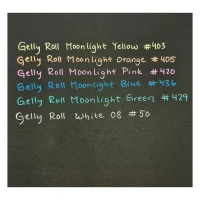 Gelly Roll Moonlight Yellow #403
Gelly Roll Moonlight Orange #405
Gelly Roll Moonlight Pink #420
Gelly Roll Moonlight Blue #436
Gelly Roll Moonlight Green #429
Gelly Roll White 08 #50